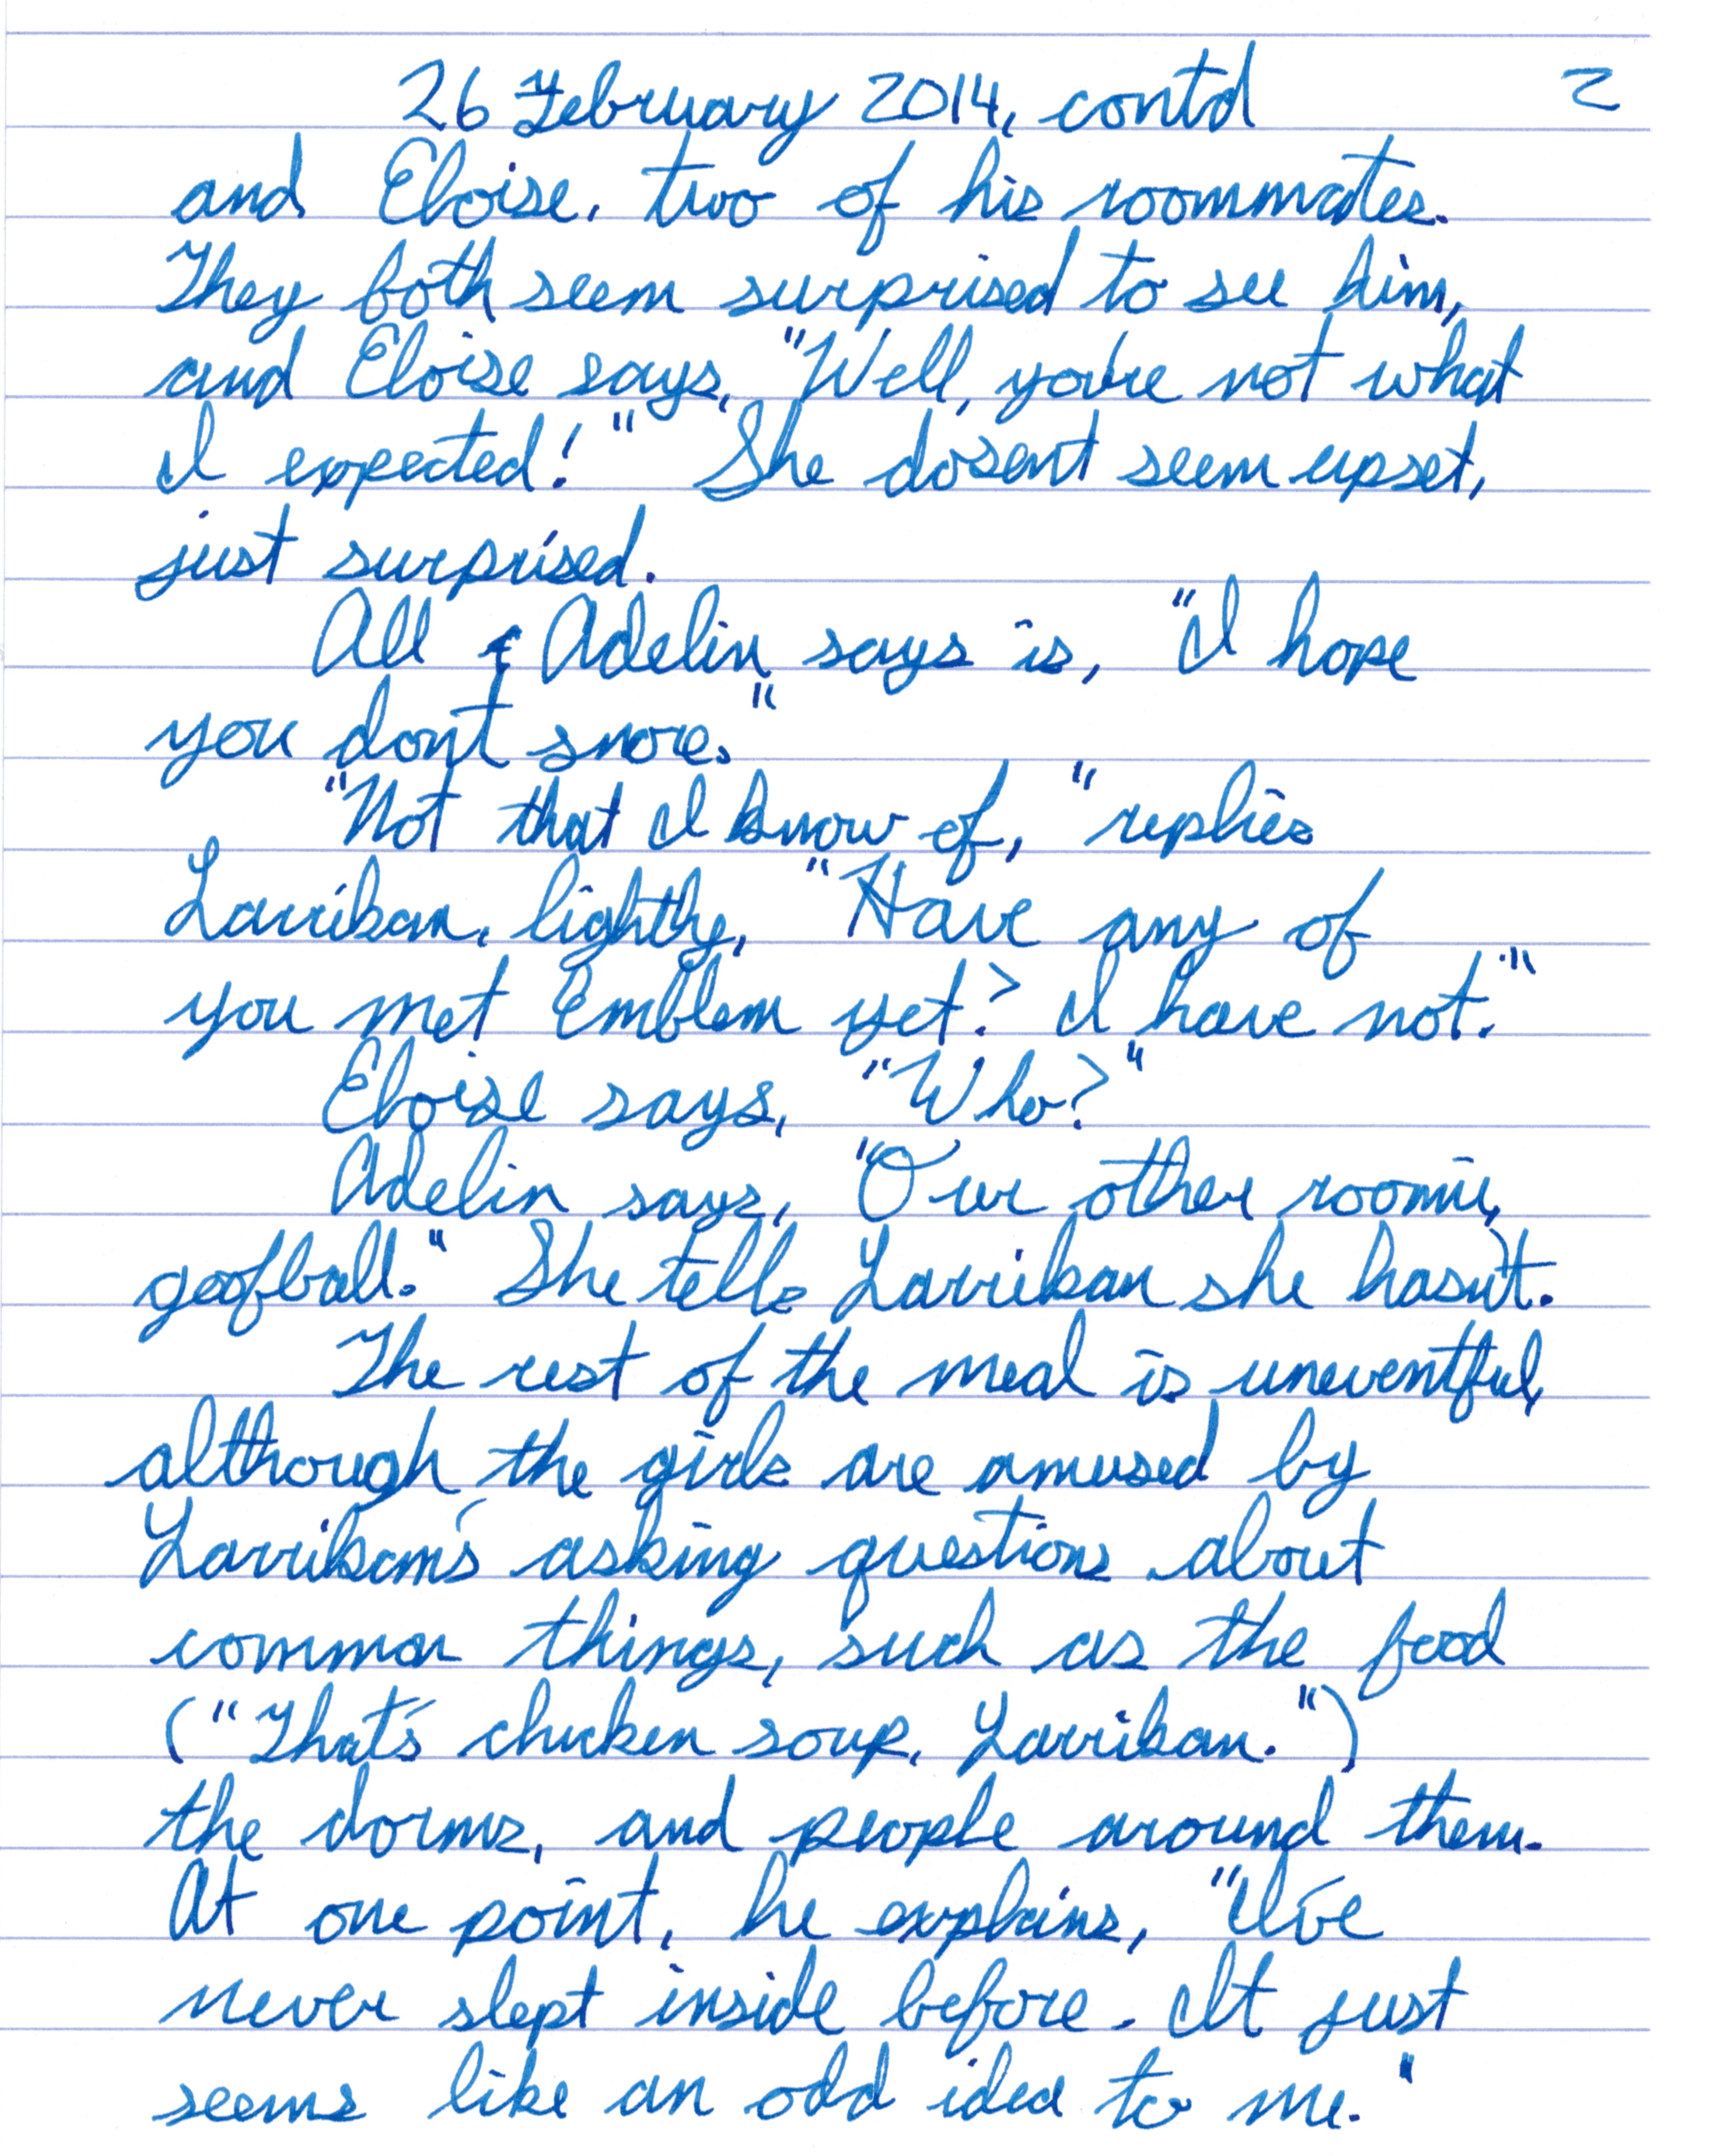 26 February 2014, contd 2
and Eloise, two of his roommates.
They both seem surprised to see him,
and Eloise says, "Well, you're not what
I expected!" She dosent seem upset,
just surprised.
All Adelin says is, "I hope
you don't snore."
"Not that I know of," replies
Larrikan, lightly, "Have any of
you met Emblem yet? I have not."
Eloise says, "Who?"
Adelin says, "Our other roomie,
goofball." She tells Larrikan she hasn't.
The rest of the meal is uneventful,
although the girls are amused by
Larrikan's asking questions about
common things, such as the food
("That's chicken soup, Larrikan.")
the dorms, and people around them.
At one point, he explains, "I've
never slept inside before. It just
seems like an odd idea to me."